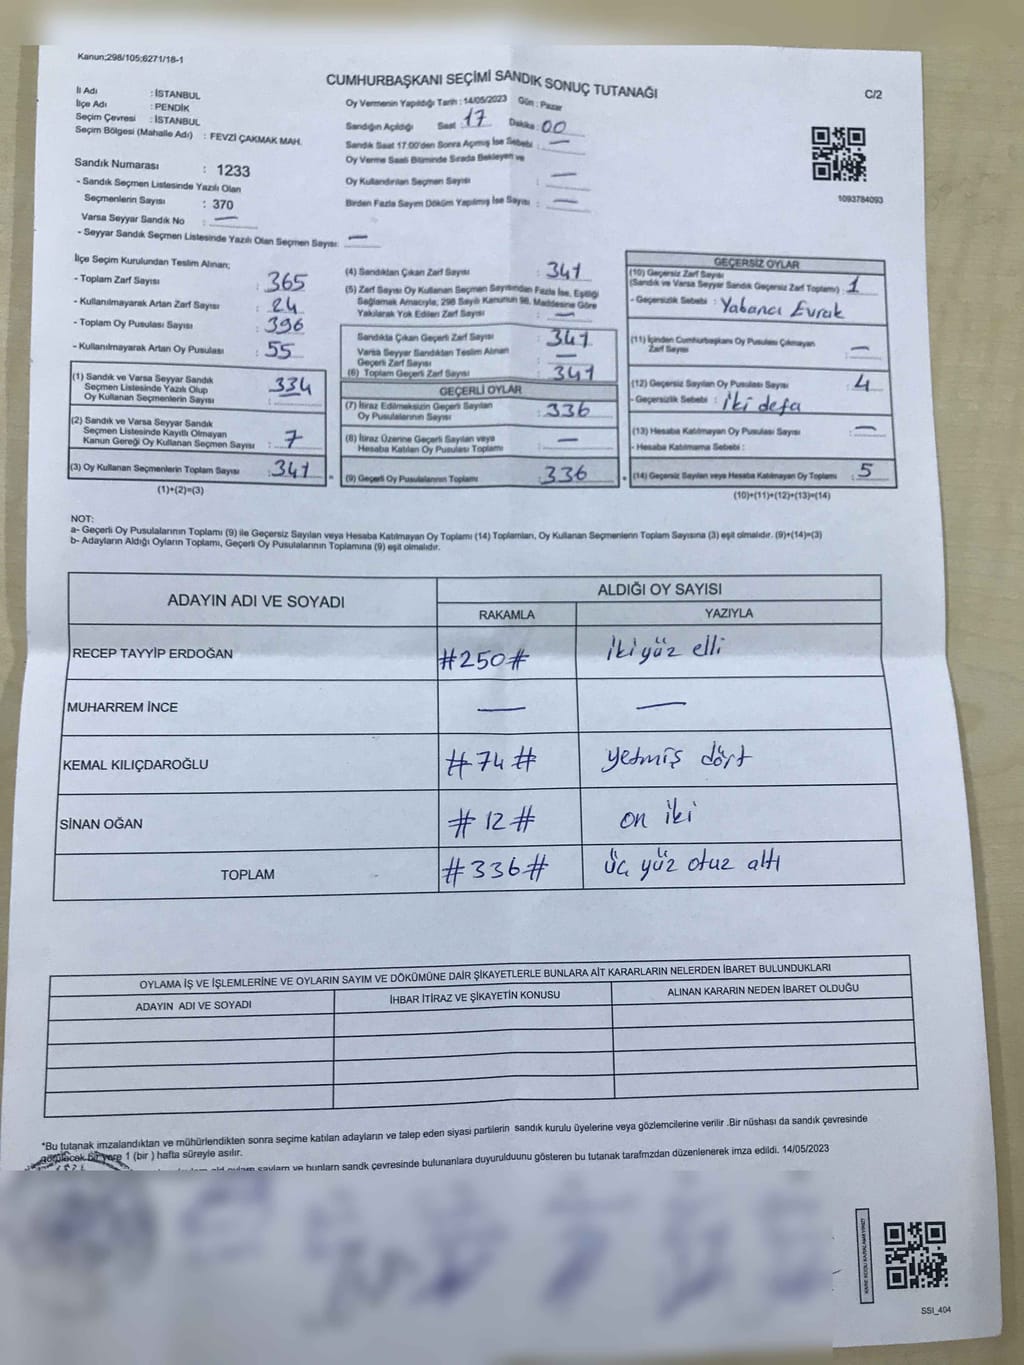 Kanun;298/105;6271/18-1
CUMHURBAŞKANI SEÇİMİ SANDIK SONUÇ TUTANAĞI
C/2
İl Adı : İSTANBUL
İlçe Adı : PENDİK
Seçim Çevresi : İSTANBUL
Seçim Bölgesi (Mahalle Adı) : FEVZİ ÇAKMAK MAH.
Sandık Numarası : 1233
- Sandık Seçmen Listesinde Yazılı Olan
Seçmenlerin Sayısı : 370
Varsa Seyyar Sandık No : —
- Seyyar Sandık Seçmen Listesinde Yazılı Olan Seçmen Sayısı: —
Oy Vermenin Yapıldığı Tarih : 14/05/2023 Gün : Pazar
Sandığın Açıldığı Saat : 17 Dakika : 00
Sandık Saat 17:00'den Sonra Açımış İse Sebebi : —
Oy Verme Saati Bitiminde Sırada Bekleyen ve
Oy Kullandırılan Seçmen Sayısı : —
Birden Fazla Sayım Döküm Yapılmış İse Sayısı : —
1093784093
İlçe Seçim Kurulundan Teslim Alınan;
- Toplam Zarf Sayısı : 365
- Kullanılmayarak Artan Zarf Sayısı : 24
- Toplam Oy Pusulası Sayısı : 396
- Kullanılmayarak Artan Oy Pusulası : 55
(1) Sandık ve Varsa Seyyar Sandık
Seçmen Listesinde Yazılı Olup
Oy Kullanan Seçmenlerin Sayısı : 334
(2) Sandık ve Varsa Seyyar Sandık
Seçmen Listesinde Kayıtlı Olmayan
Kanun Gereği Oy Kullanan Seçmen Sayısı : 7
(3) Oy Kullanan Seçmenlerin Toplam Sayısı : 341
(1)+(2)=(3)
(4) Sandıktan Çıkan Zarf Sayısı : 341
(5) Zarf Sayısı Oy Kullanan Seçmen Sayısından Fazla İse, Eşitliği
Sağlamak Amacıyla, 298 Sayılı Kanunun 98. Maddesine Göre
Yakılarak Yok Edilen Zarf Sayısı : —
Sandıkta Çıkan Geçerli Zarf Sayısı : 341
Varsa Seyyar Sandıktan Teslim Alınan
Geçerli Zarf Sayısı : —
(6) Toplam Geçerli Zarf Sayısı : 341
GEÇERLİ OYLAR
(7) İtiraz Edilmeksizin Geçerli Sayılan
Oy Pusulalarının Sayısı : 336
(8) İtiraz Üzerine Geçerli Sayılan veya
Hesaba Katılan Oy Pusulası Toplamı : —
= (9) Geçerli Oy Pusulalarının Toplamı : 336
GEÇERSİZ OYLAR
(10) Geçersiz Zarf Sayısı
(Sandık ve Varsa Seyyar Sandık Geçersiz Zarf Toplamı) : 1
- Geçersizlik Sebebi : Yabancı Evrak
(11) İçinden Cumhurbaşkanı Oy Pusulası Çıkmayan
Zarf Sayısı : —
(12) Geçersiz Sayılan Oy Pusulası Sayısı : 4
- Geçersizlik Sebebi : İki defa
(13) Hesaba Katılmayan Oy Pusulası Sayısı : —
- Hesaba Katılmama Sebebi :
+ (14) Geçersiz Sayılan veya Hesaba Katılmayan Oy Toplamı : 5
(10)+(11)+(12)+(13)=(14)
NOT:
a- Geçerli Oy Pusulalarının Toplamı (9) ile Geçersiz Sayılan veya Hesaba Katılmayan Oy Toplamı (14) Toplamları, Oy Kullanan Seçmenlerin Toplam Sayısına (3) eşit olmalıdır. (9)+(14)=(3)
b- Adayların Aldığı Oyların Toplamı, Geçerli Oy Pusulalarının Toplamına (9) eşit olmalıdır.
ADAYIN ADI VE SOYADI
ALDIĞI OY SAYISI
RAKAMLA YAZIYLA
RECEP TAYYİP ERDOĞAN #250# iki yüz elli
MUHARREM İNCE — —
KEMAL KILIÇDAROĞLU #74# yetmiş dört
SİNAN OĞAN #12# on iki
TOPLAM #336# üç yüz otuz altı
OYLAMA İŞ VE İŞLEMLERİNE VE OYLARIN SAYIM VE DÖKÜMÜNE DAİR ŞİKAYETLERLE BUNLARA AİT KARARLARIN NELERDEN İBARET BULUNDUKLARI
ADAYIN ADI VE SOYADI İHBAR İTİRAZ VE ŞİKAYETİN KONUSU ALINAN KARARIN NEDEN İBARET OLDUĞU
*Bu tutanak imzalandıktan ve mühürlendikten sonra seçime katılan adayların ve talep eden siyasi partilerin sandık kurulu üyelerine veya gözlemcilerine verilir .Bir nüshası da sandık çevresinde
görülecek bir yere 1 (bir ) hafta süreyle asılır.
sayılarn ve bunların sandk çevresinde bulunanlara duyurulduunu gösteren bu tutanak tarafmzdan düzenlenerek imza edildi. 14/05/2023
SSI_404